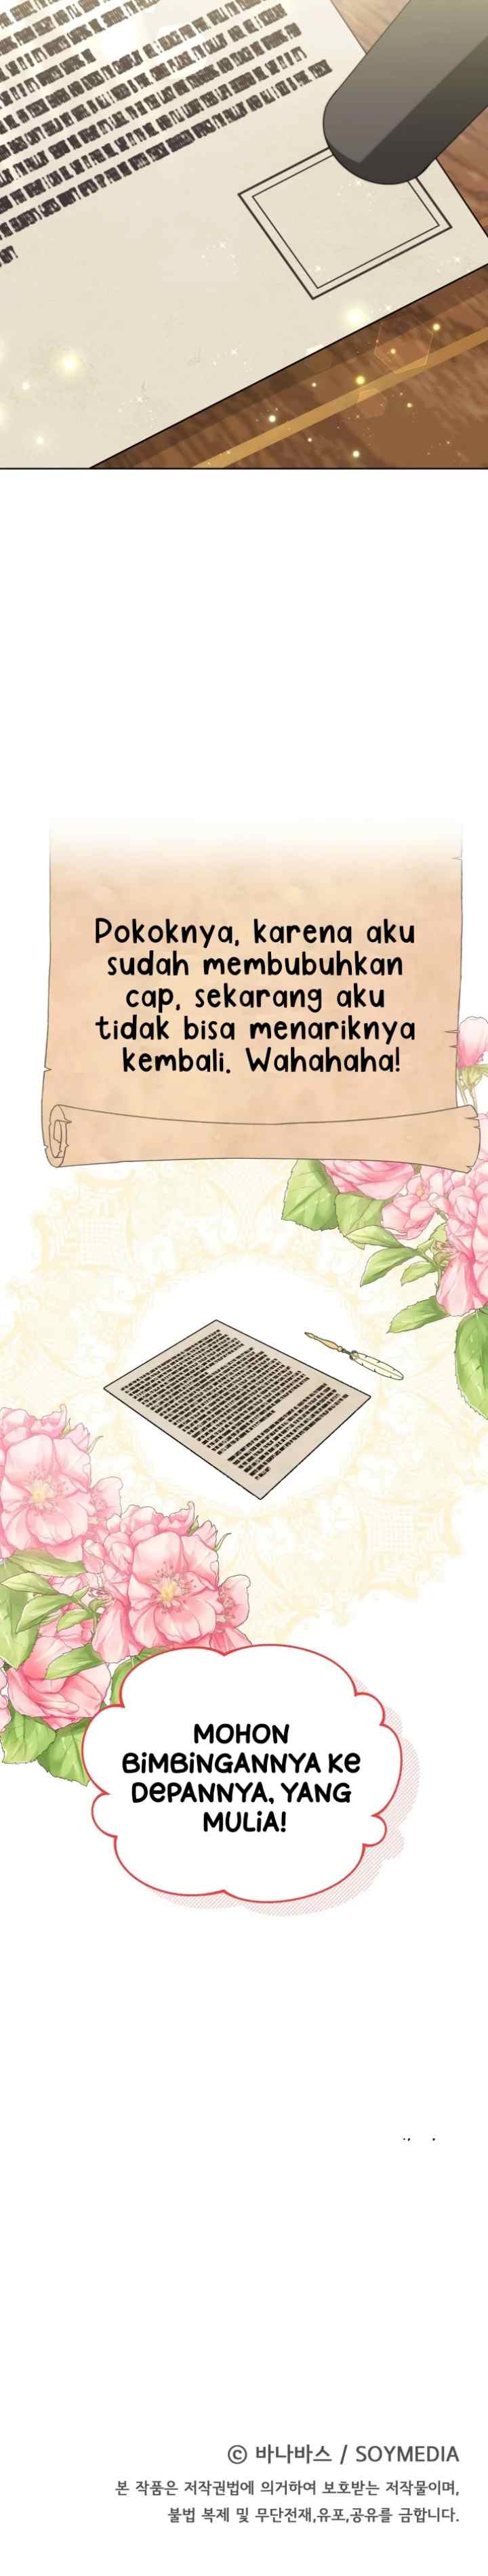 Pokoknya, karena aku
sudah membubuhkan
cap, sekarang aku
tidak bisa menariknya
kembali. Wahahaha!
MOHON
BiMBiNGANNYA Ke
DePANNYA, YANG
MULiA!
© 바나바스 / SOYMEDIA
본 작품은 저작권법에 의거하여 보호받는 저작물이며,
불법 복제 및 무단전재,유포,공유를 금합니다.